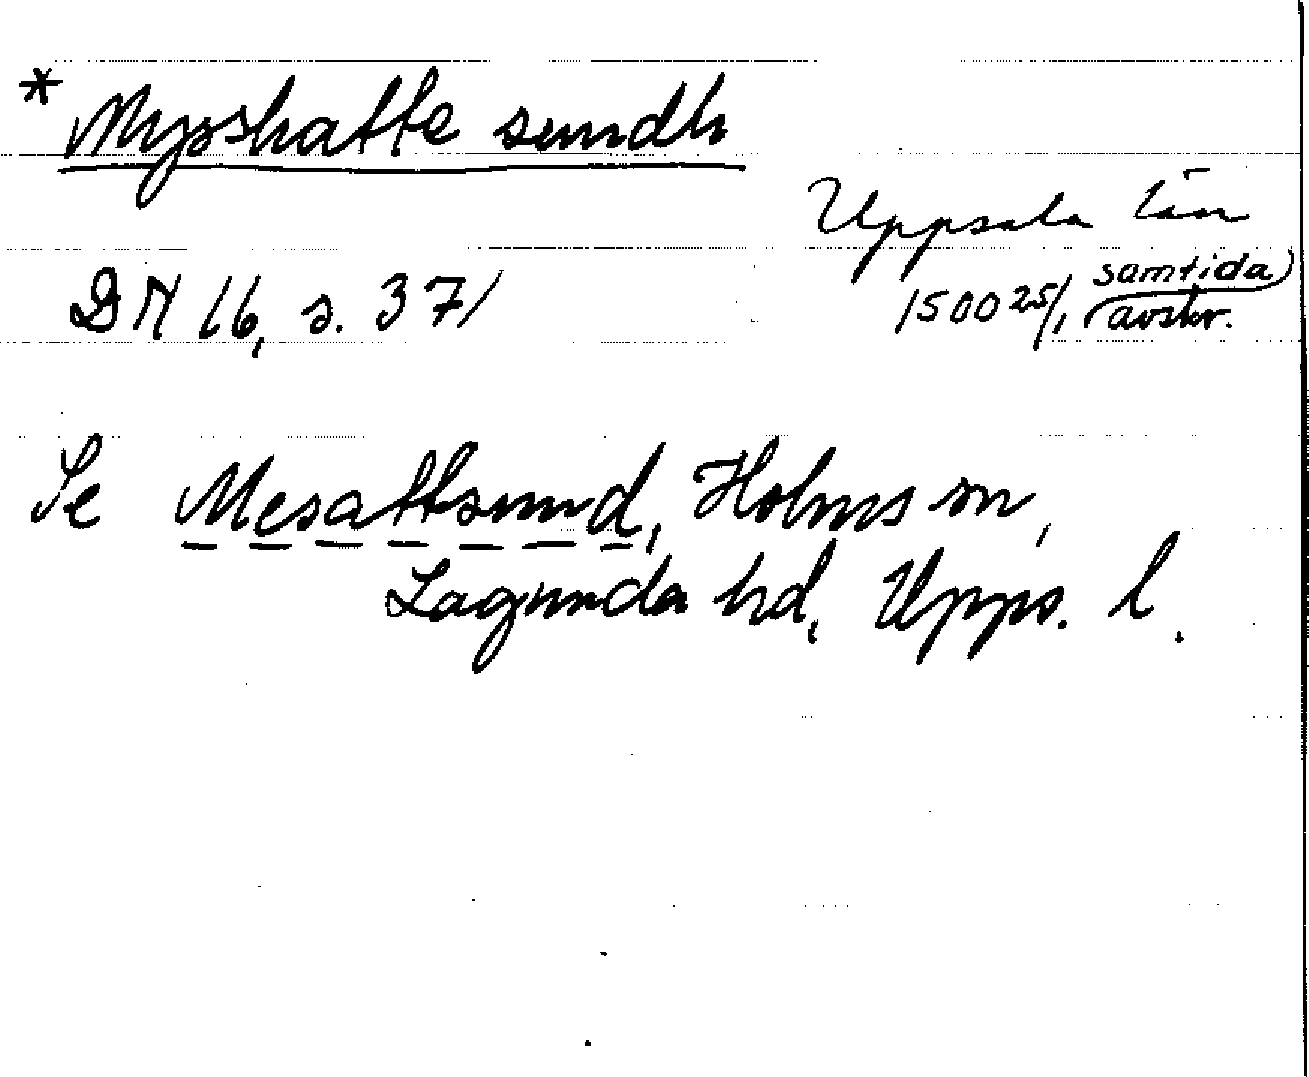 * Mysshatte sundh
Uppsala län
DN 16, s. 371
1500 25/1, samtida
avskr.
Se Mesattsund, Holms sn,
Lagunda hd, Upps. l.